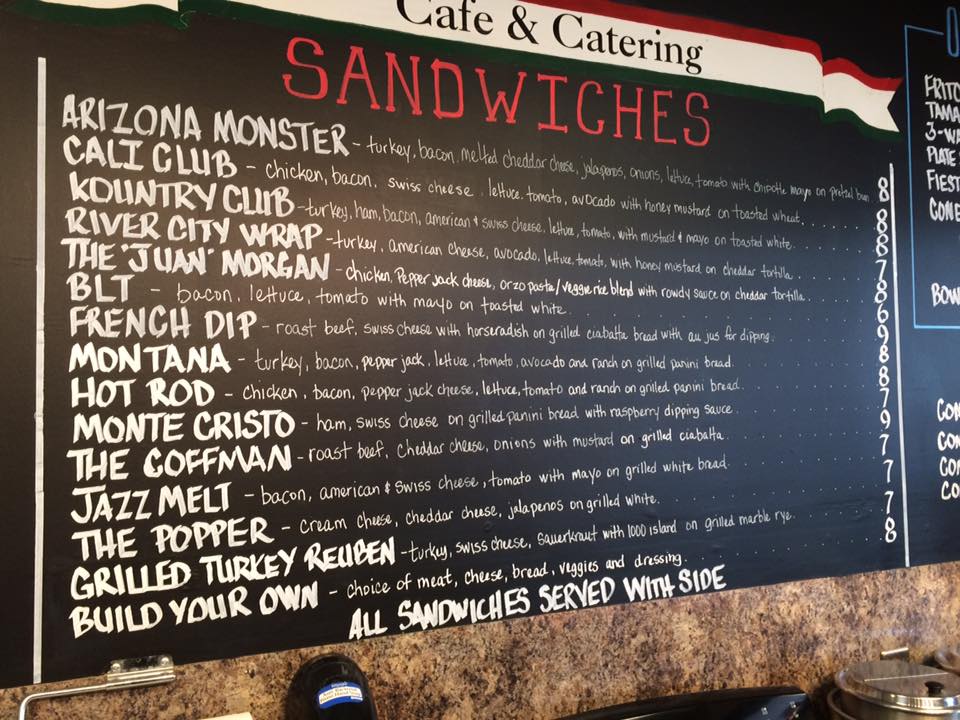 Cafe & Catering
SANDWICHES
ARIZONA MONSTER - turkey, bacon, melted cheddar cheese, jalapenos, onions, lettuce, tomato with chipotle mayo on pretzel bun. 8
CALI CLUB - chicken, bacon, swiss cheese, lettuce, tomato, avocado with honey mustard on toasted wheat. 8
KOUNTRY CLUB - turkey, ham, bacon, american & swiss cheese, lettuce, tomato, with mustard & mayo on toasted white. 8
RIVER CITY WRAP - turkey, american cheese, avocado, lettuce, tomato, with honey mustard on cheddar tortilla. 7
THE "JUAN" MORGAN - chicken, Pepper jack cheese, orzo pasta/veggie rice blend with rowdy sauce on cheddar tortilla. 8
BLT - bacon, lettuce, tomato with mayo on toasted white. 6
FRENCH DIP - roast beef, swiss cheese with horseradish on grilled ciabatta bread with au jus for dipping. 9
MONTANA - turkey, bacon, pepper jack, lettuce, tomato, avocado and ranch on grilled panini bread. 8
HOT ROD - chicken, bacon, pepper jack cheese, lettuce, tomato and ranch on grilled panini bread. 8
MONTE CRISTO - ham, swiss cheese on grilled panini bread with raspberry dipping sauce. 7
THE COFFMAN - roast beef, cheddar cheese, onions with mustard on grilled ciabatta. 9
JAZZ MELT - bacon, american & swiss cheese, tomato with mayo on grilled white bread. 7
THE POPPER - cream cheese, cheddar cheese, jalapenos on grilled white. 7
GRILLED TURKEY REUBEN - turkey, swiss cheese, sauerkraut with 1000 island on grilled marble rye. 7
BUILD YOUR OWN - choice of meat, cheese, bread, veggies and dressing. 8
ALL SANDWICHES SERVED WITH SIDE
FRITO
TAMA
3-WA
PLATE
FIEST
CONE
BOW